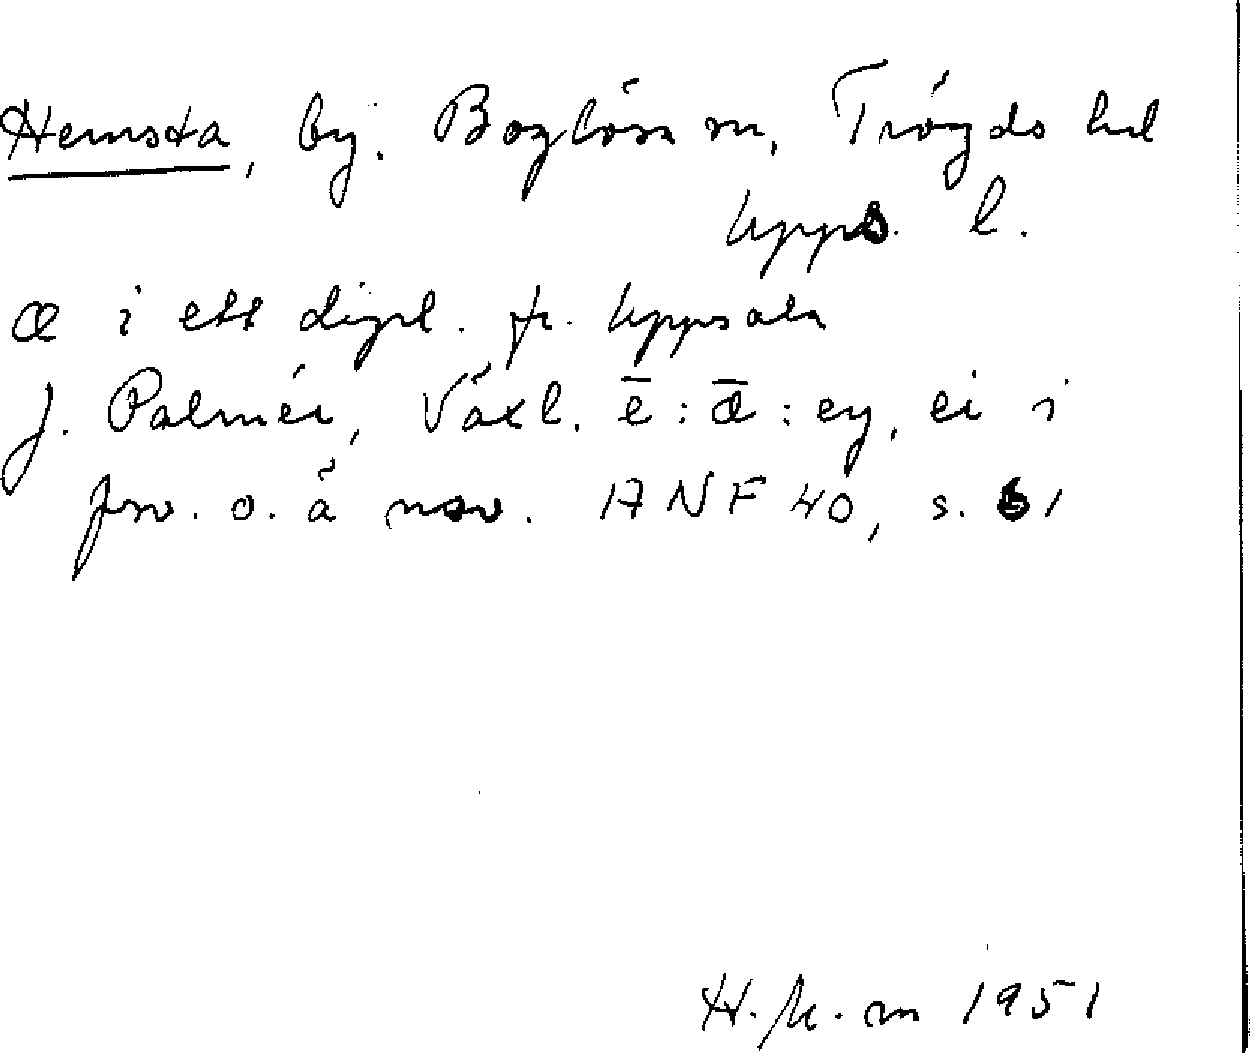 Hemsta, by. Boglösa sn, Trögds hd
Upps. l.
æ i ett dipl. fr. Uppsala
J. Palmér, Växl. ē : ǣ : ey, ei i
fsv. o. ä nsv. ANF 40, s. 61
1951